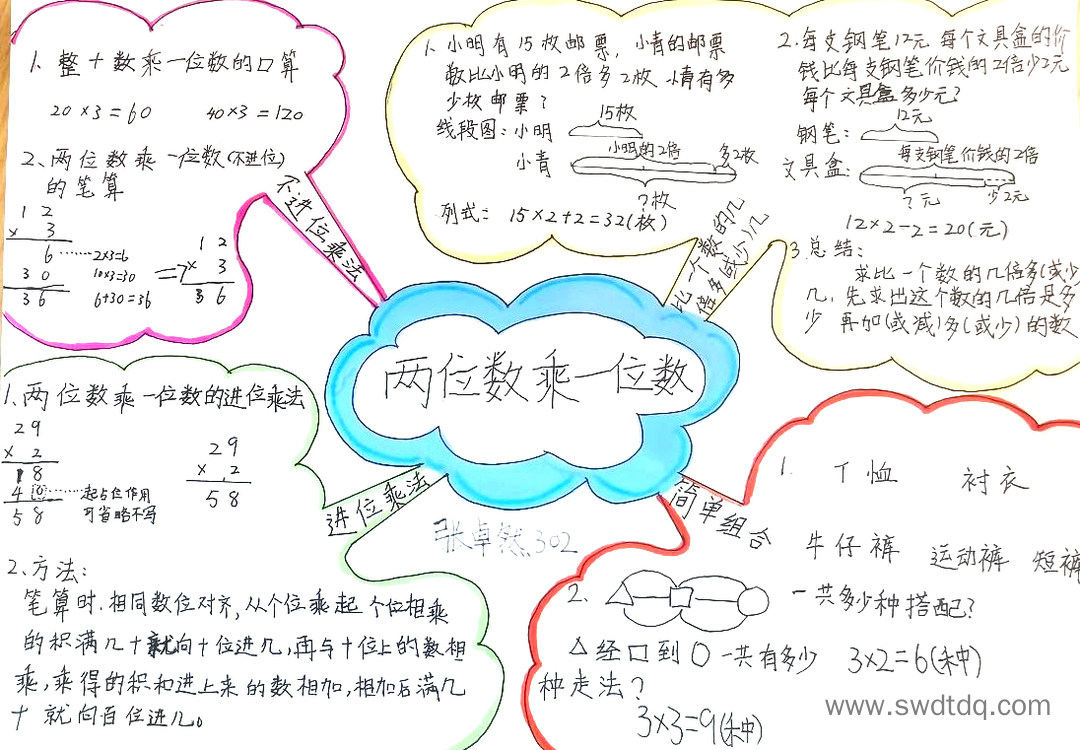 两位数乘一位数
张卓然 302
不进位乘法
1. 整十数乘一位数的口算
20×3=60 40×3=120
2、两位数乘一位数(不进位)
的笔算
1 2
× 3
6 ……2×3=6
3 0 10×3=30
3 6 6+30=36
=7
1 2
× 3
3 6
比一个数的几
倍多(或少)几
1. 小明有15枚邮票，小青的邮票
数比小明的2倍多2枚 小青有多
少枚邮票？
线段图：小明 15枚
小青 小明的2倍 多2枚
?枚
列式： 15×2+2=32(枚)
2.每支钢笔12元 每个文具盒的价
钱比每支钢笔价钱的2倍少2元
每个文具盒多少元?
钢笔： 12元
文具盒： 每支钢笔价钱的2倍
? 元 少2元
12×2-2=20(元)
3 总结：
求比一个数的几倍多(或少
几，先求出这个数的几倍是多
少 再加(或减)多(或少)的数
进位乘法
1.两位数乘一位数的进位乘法
29
× 2
18
40 ……起占位作用
58 可省略不写
29
× 2
58
2.方法：
笔算时.相同数位对齐,从个位乘起 个位相乘
的积满几十就向十位进几,再与十位上的数相
乘,乘得的积和进上来的数相加,相加后满几
十 就向百位进几。
简单组合
1. T恤 衬衣
牛仔裤 运动裤 短裤
一共多少种搭配?
3×2=6(种)
2.
△经口到〇一共有多少
种走法？
3×3=9(种)
www.swdtdq.com